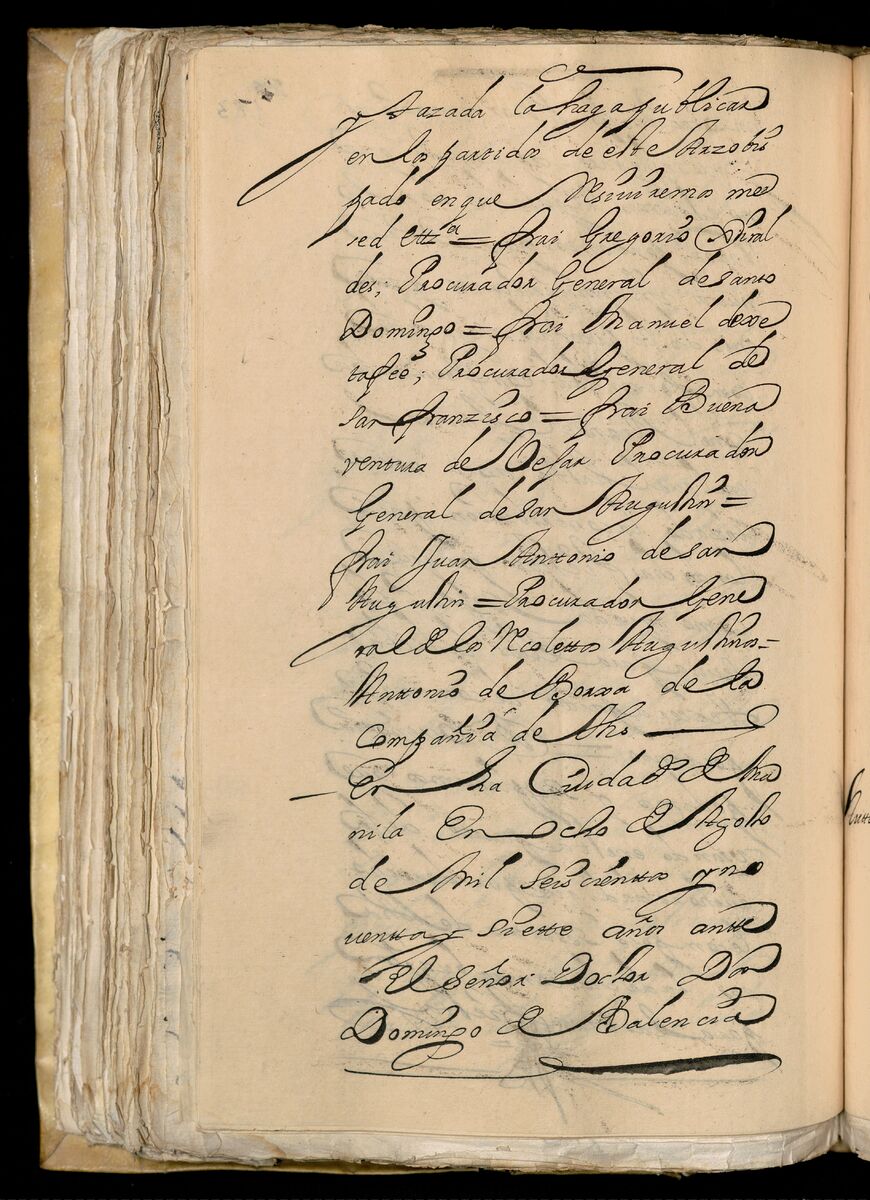 y tazada la haga publicar
en los partidos de este Arzobis
pado en que Resiuiremos mer
sed ettza = frai Gregorio Jiral
des, Procurador General de santo
Domingo = frai Manuel de
Procurador General de
san franzisco = frai Buena
ventura de Vejar Procurador
General de san Augustin =
frai Juan Anttonio de san
Augustin = Procurador Gene
ral de los Recolettos Augustinos =
Anttonio de Borxa de la
Compañia de Jhs
En la Ciudad de Ma
nila En ocho de Agosto
de Mil seiscienttos y no
uentta y siette años antte
El señor Doctor Don
Domingo de Balencia